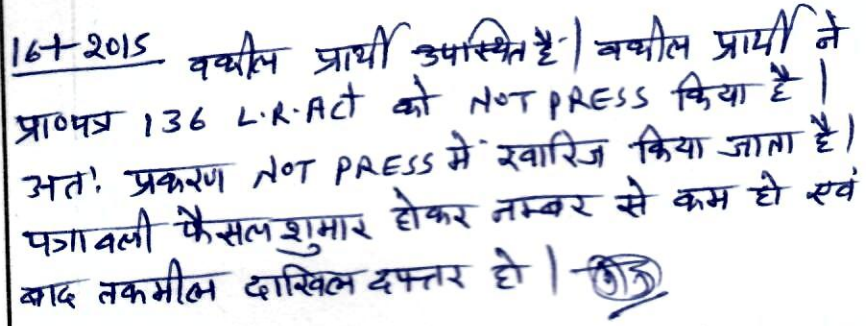 16-7-2015 वकील प्रार्थी उपस्थित है। वकील प्रार्थी ने
प्रा०पत्र 136 L.R.Act को NOT PRESS किया है।
अतः प्रकरण NOT PRESS में खारिज किया जाता है।
पत्रावली फैसल शुमार होकर नम्बर से कम हो एवं
बाद तकमील दाखिल दफ्तर हो।